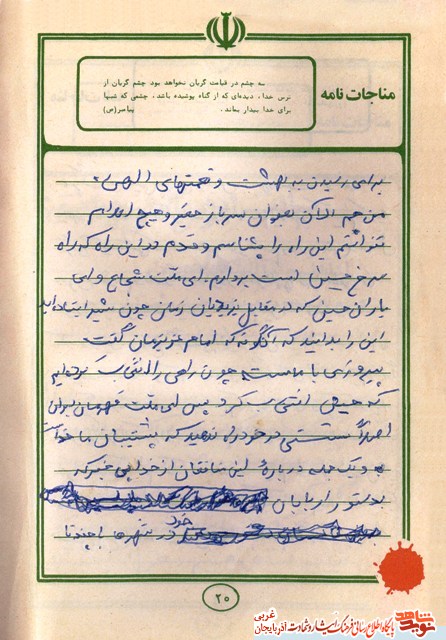 مناجات نامه
سه چشم در قیامت گریان نخواهد بود چشم گریان از
ترس خدا، دیده‌ای که از گناه پوشیده باشد. چشمی که شبها
برای خدا بیدار بماند.
پیامبر(ص)
برای رسیدن به بهشت و نعمتهای الهی،
من هم الان بعنوان سرباز حقیر و هیچ امام
توانستم این راه را بشناسم و قدم در این راه که راه
سرخ حسین است بردارم. ای ملت شجاع و ای
یاران حسین که در مقابل یزیدیان زمان چون شیر ایستاده‌اید
این را بدانید که آنگونه که امام عزیزمان گفت
پیروزی با ماست چون راهی را انتخاب کرده‌ایم
که حسین انتخاب کرد پس ای ملت قهرمان ایران
اصلاً سستی در خود راه ندهید که پشتیبان ما خداست
و یک جمله درباره این منافقان از خدا بی خبر که
بدستور اربابان
خود در شهرها با
۲۵
نوید شاهد
پایگاه اطلاع رسانی فرهنگ ایثار و شهادت آذربایجان غربی